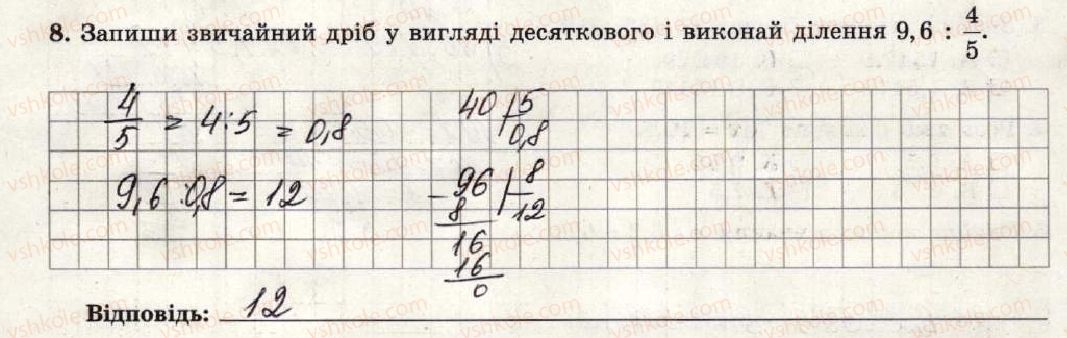 8. Запиши звичайний дріб у вигляді десяткового і виконай ділення 9,6 : 4/5.
4/5 = 4:5 = 0,8
40 | 5
0,8
9,6 : 0,8 = 12
- 96 | 8
8 | 12
16
16
0
Відповідь: 12